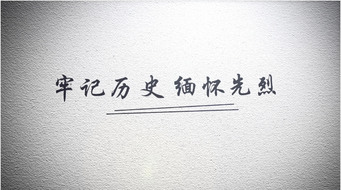 牢记历史 缅怀先烈